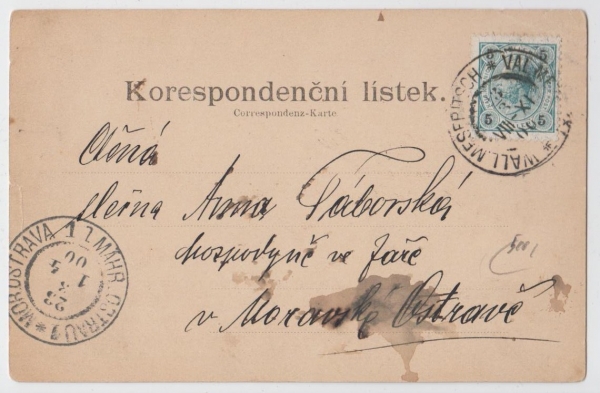 Korespondenční lístek.
Correspondenz-Karte
5 5
WALL.MESERITSCH * VAL.ME
Ctěná
slečna Anna Táborská
hospodyně ve faře
v Moravské Ostravě
MOR.OSTRAVA 1 1 MÄHR.OSTRAU
23
1 3 4
00
500,